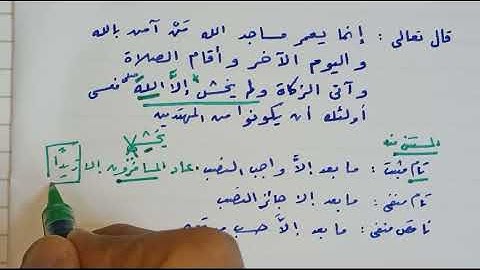 قال تعالى : إنما يعمر مساجد الله مَنْ آمن بالله
واليوم الآخر وأقام الصلاة
وآتى الزكاة ولم يخش إلاَّ اللهَ فعسى
أولئك أن يكونوا من المهتدين
يخشى
المستثنى منه
تام مثبت : ما بعد إلاَّ واجب النصب . عاد المسافرون إلا زيدًا
تام منفي : ما بعد إلا جائز النصب
ناقص منفي : ما بعد إلاَّ حسب موقعه